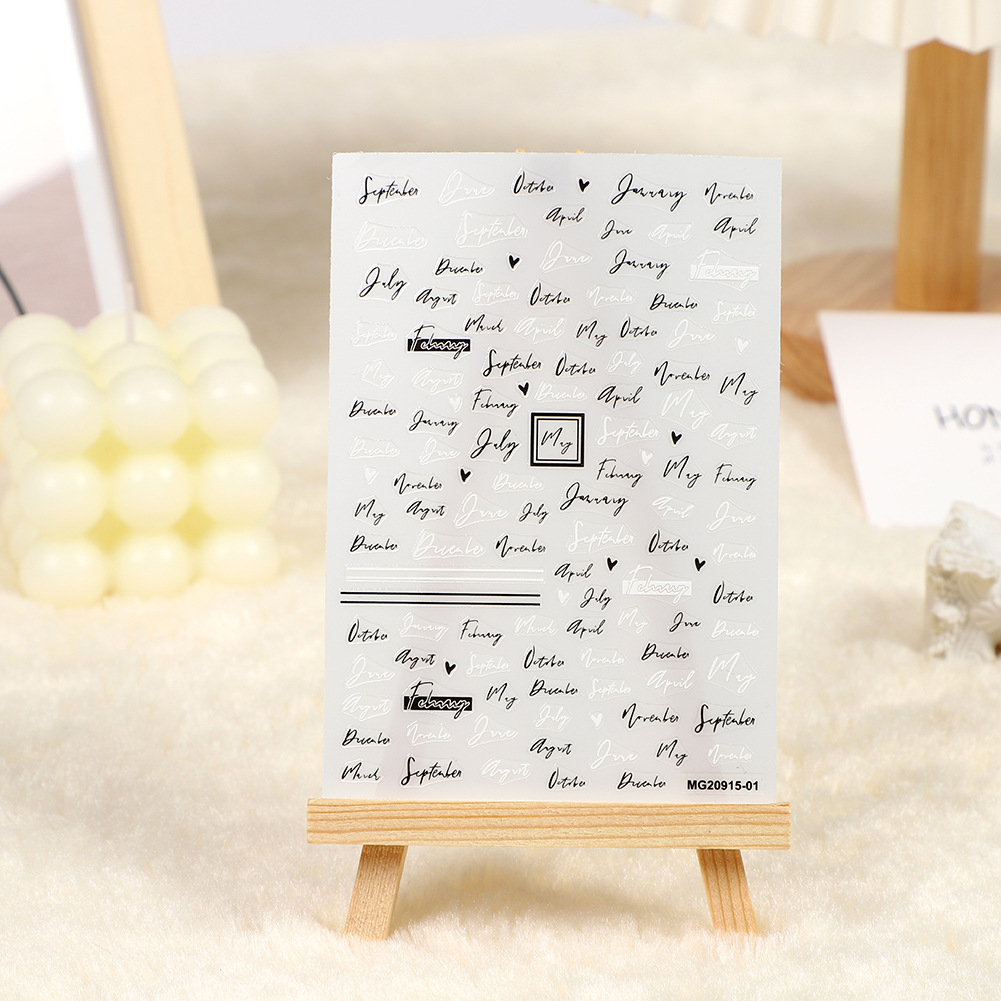 September June October January November
April
December September June April April
July December June January February
August September October November December September
September February March April May October June
May August September October July November May
December January February December April May
December June July May September August
November December February May February
May August June July January April June
December December November September October November
April February
July October
October January February March April May June December
August September October November December
June February May December September April May
August July November September
December November June August June May November
March September August October December
MG20915-01
HOM